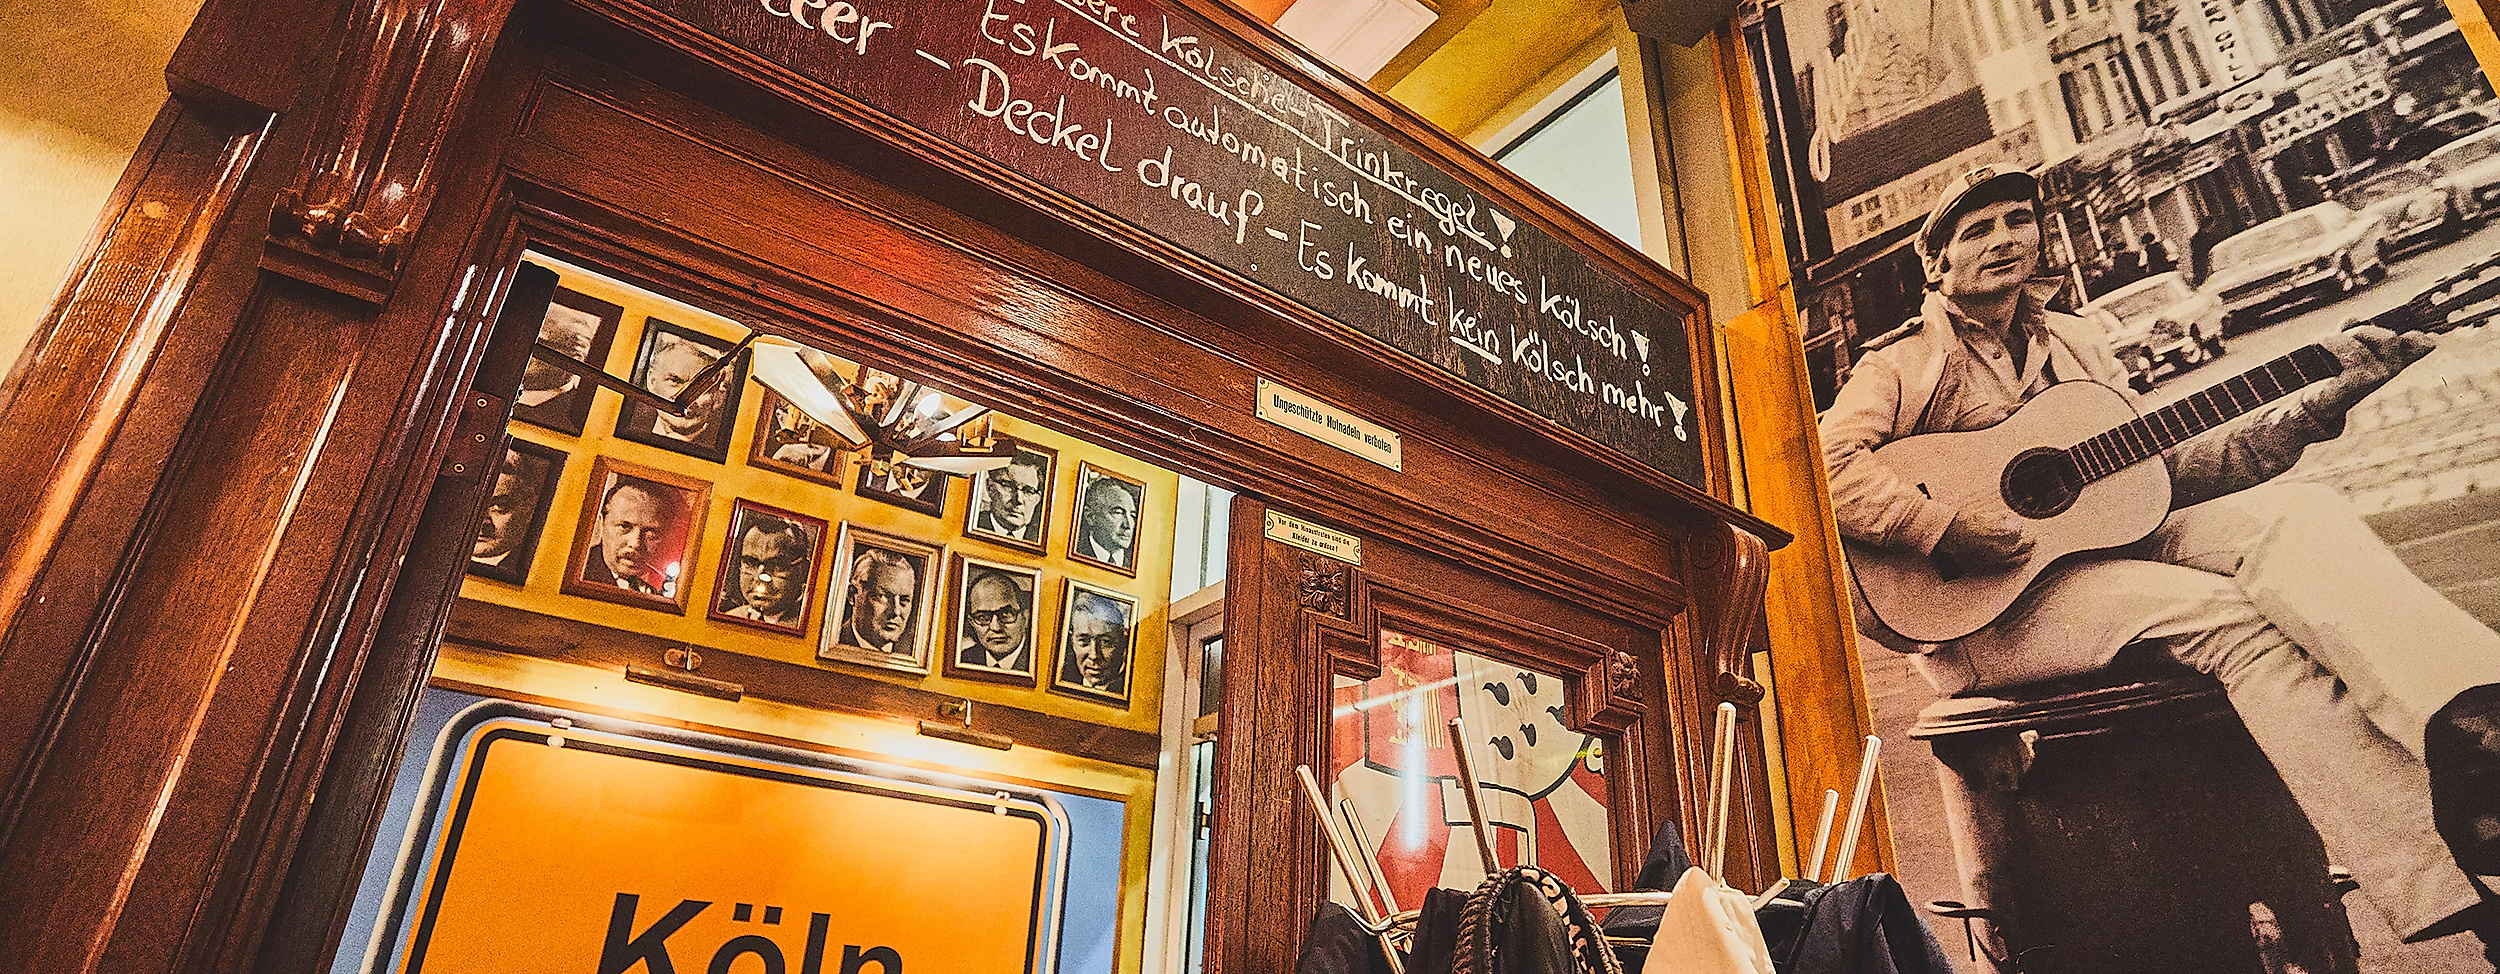 Kölsche Trinkregel!
Es kommt automatisch ein neues Kölsch!
Deckel drauf - Es kommt kein Kölsch mehr!
Ungeschützte Hutnadeln verboten
Vor dem Hinaustreten sind die
Kleider zu ordnen!
Köln